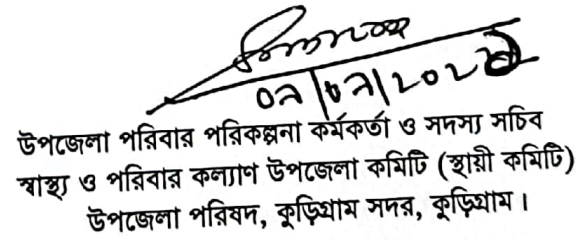 উপজেলা পরিবার পরিকল্পনা কর্মকর্তা ও সদস্য সচিব
স্বাস্থ্য ও পরিবার কল্যাণ উপজেলা কমিটি (স্থায়ী কমিটি)
উপজেলা পরিষদ, কুড়িগ্রাম সদর, কুড়িগ্রাম।